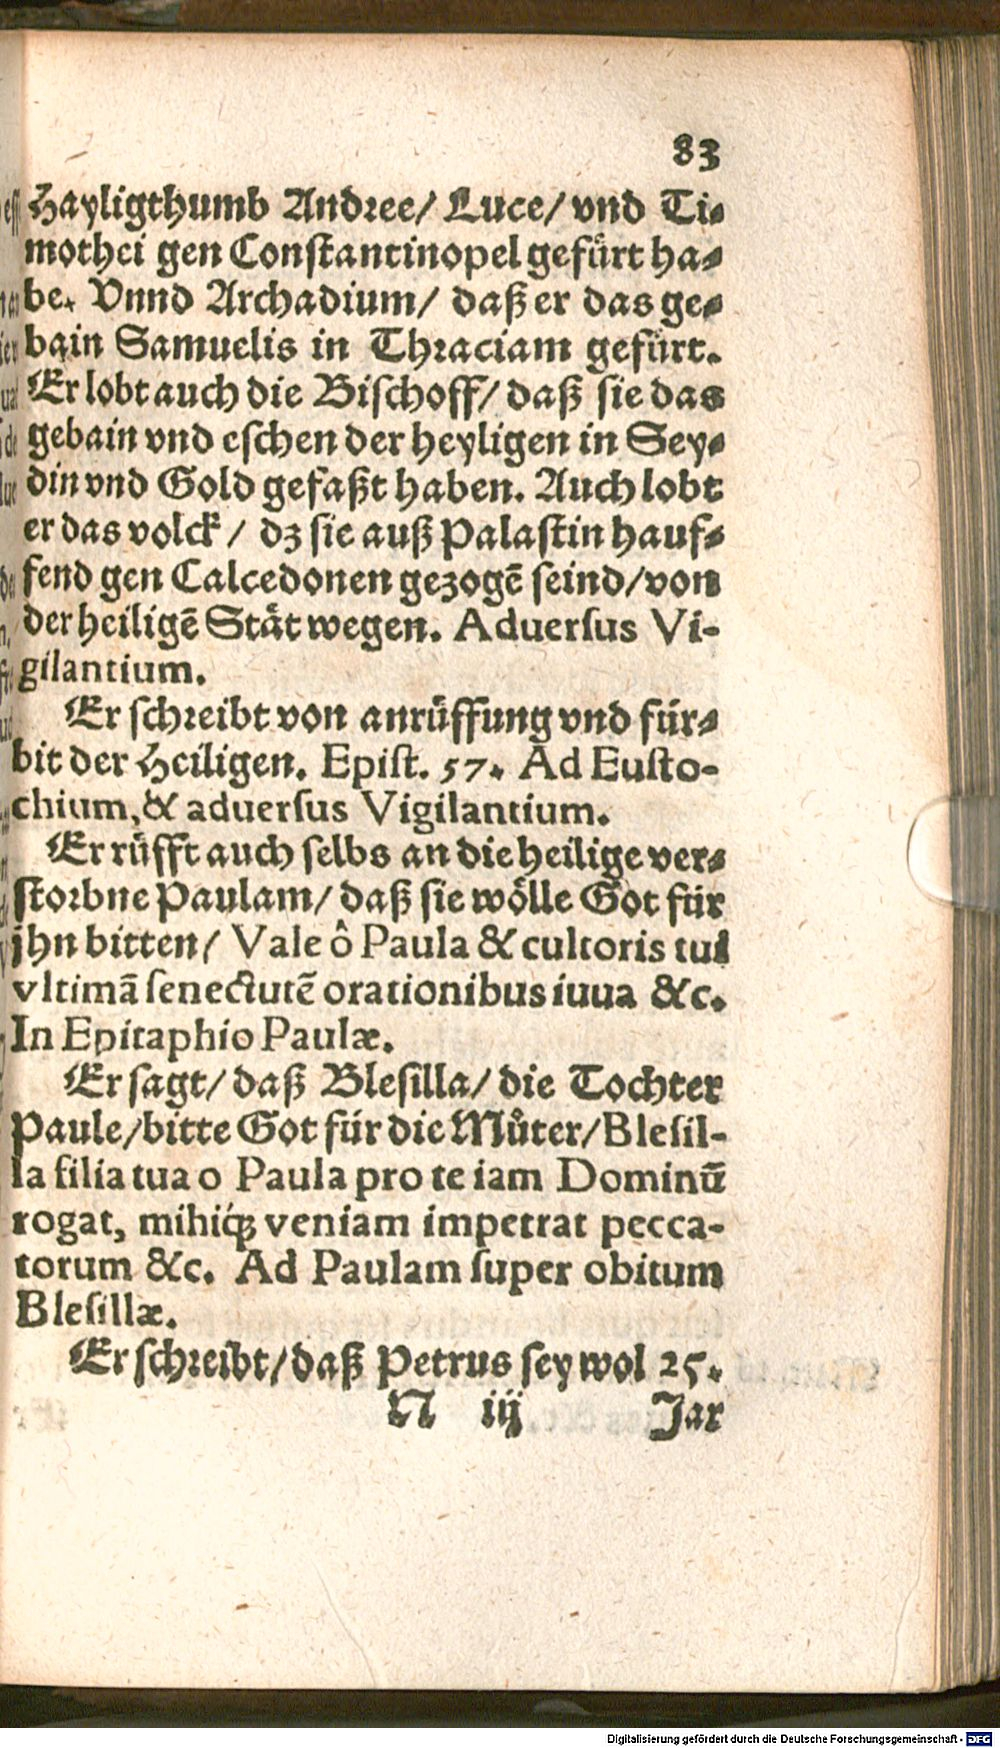 83
Hayligthumb Andree/ Luce/ vnd Ti-
mothei gen Constantinopel gefürt ha-
be. Vnnd Archadium/ daß er das ge-
bain Samuelis in Thraciam gefürt.
Er lobt auch die Bischoff/ daß sie das
gebain vnd eschen der heyligen in Sey-
din vnd Gold gefaßt haben. Auch lobt
er das volck/ dz sie auß Palastin hauf-
fend gen Calcedonen gezogē seind/ von
der heiligē Stät wegen. Aduersus Vi-
gilantium.
Er schreibt von anrüffung vnd für-
bit der Heiligen. Epist. 57. Ad Eusto-
chium, & aduersus Vigilantium.
Er rüfft auch selbs an die heilige ver-
storbne Paulam/ daß sie wölle Got für
jhn bitten/ Vale ô Paula & cultoris tui
vltimā senectutē orationibus iuua &c.
In Epitaphio Paulæ.
Er sagt/ daß Blesilla/ die Tochter
Paule/ bitte Got für die Můter/ Blesil-
la filia tua o Paula pro te iam Dominū
rogat, mihiq́; veniam impetrat pecca-
torum &c. Ad Paulam super obitum
Blesillæ.
Er schreibt/ daß Petrus sey wol 25.
N iij Jar
Digitalisierung gefördert durch die Deutsche Forschungsgemeinschaft - DFG